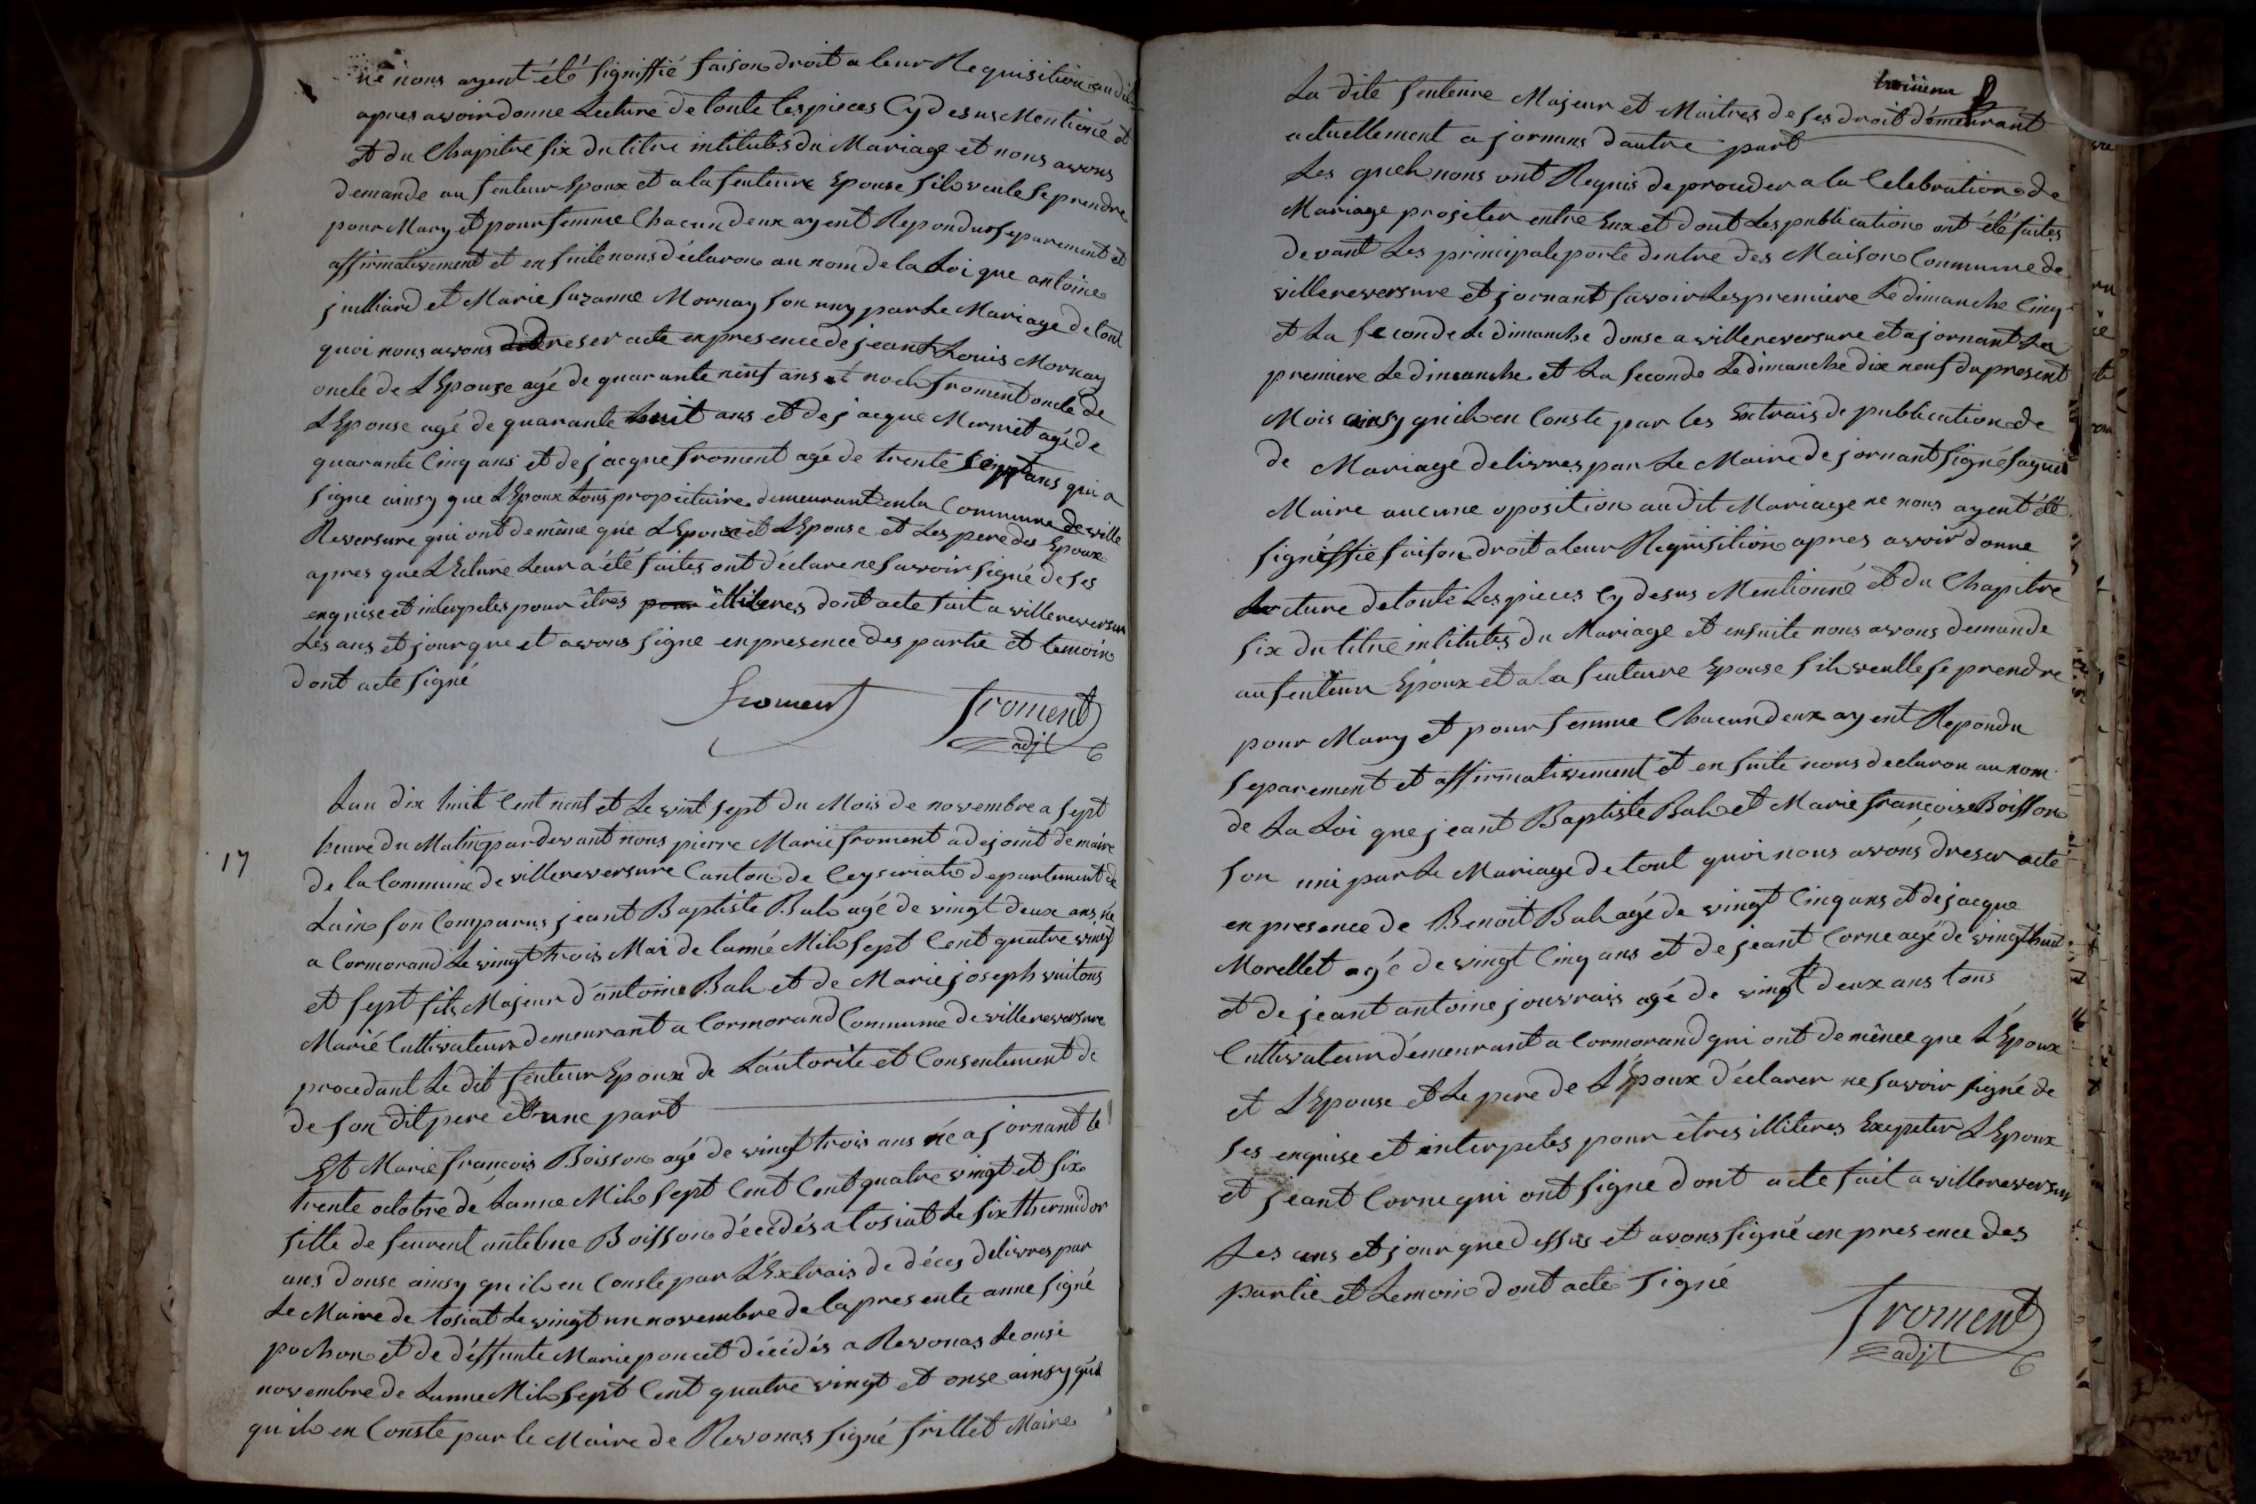 ne nous ayent été signiffié faison droit a leur Requisition au dit
apres avoir donne Lecture de toute les pieces Cy desus Mentioné et
et du Chapitre six du titre intitulés du Mariage et nous avons
demande au fenteur Epoux et a la fenteure Epouse silo veule se prendre
pour Mary et pour femme Chacun deux ayent Repondus separement et
affirmativement et en suite nous déclarons au nom de la Loi que antoine
juilliard et Marie Suzanne Mornay son uny par Le Mariage de tout
quoi nous avons dreser acte en presence de jeant Louis Mornay
oncle de L'Epouse agé de quarante neuf ans et noel froment oncle de
L'Epouse agé de quarante huit ans et de jacque Mermet agé de
quarante Cinq ans et de jacque froment agé de trente sept ans qui a
signe ainsy que L'Epoux tous propietaire demeurant en la Commune de ville
Reversure qui ont de même que L'Epoux et L'Epouse et Les pere des Epoux
apres que L'Ecture Leur a été faites ont déclare ne savoir signé de ses
enquise et interpetes pour êtres illiteres dont acte fait a villereversur
Les ans et jour que et avons signe en presence des partie et temoin
dont acte signé
froment froment
adjt
17
Lan dix huit Cent neuf et Le vint sept du Mois de novembre a sept
heure du Matin par devant nous pierre Marie froment adejoint de maire
de la Commune de villereversure Canton de Ceyseriat departement de
Lain son Comparus jeant Baptiste Bah agé de vingt deux ans né
a Cormorand Le vingt trois Mai de lanné Mil sept Cent quatre vingt
et sept fils Majeur d'antoine Bah et de Marie joseph vuitons
Marié Cultivateur demeurant a Cormorand Commune de villereversure
procedant Le dit fenteur Epoux de Lautorite et Consentement de
de son dit pere d'une part
Et Marie françois Boisson agé de vingt trois ans né a jornant le
trente octobre de Lanne Mil sept Cent Cent quatre vingt et six
fille de feu Boisson décédés a tosiat Le six thermidor
ans douse ainsy qu'il en Conste par L'Extrais de déces delivres par
Le Maire de tosiat Le vingt un novembre de la presente anne signé
pochon et de déffunte Marie poncet décédés a Revonas Le onse
novembre de Lanne Mil sept Cent quatre vingt et onse ainsy qu'il
qu'il en Conste par le Maire de Revonas signé frillet Maire
troisieme
La dite fenteure Majeur et Maitres de ses droit démeurant
actuellement a jornans dautre part
Les quels nous ont Requis de proceder a la Celebration de
Mariage projeter entre Eux et dont Les publications ont été faites
devant Les principale porte dentre des Maison Commune de
villereversure et jornant savoir Les premiere Le dimanche Cinq
et La seconde Le dimanche douse a villereversure et a jornant La
premiere Le dimanche et La seconde Le dimanche dix neuf du present
Mois ainsy qu'il en Conste par les Extrais de publication de
de Mariage delivres par Le Maire de jornant signé
Maire aucune oposition audit Mariage ne nous ayent été
signiffié faison droit a leur Requisition apres avoir donne
Lecture de toute Les pieces Cy desus Mentionné et du Chapitre
six du titre intitulés du Mariage et ensuite nous avons demande
au fenteur Epoux et a la fenteure Epouse silo veulle se prendre
pour Mary et pour femme Chacun deux ayent Repondu
separement et affirmativement et en suite nous declaron au nom
de La Loi que jeant Baptiste Bah et Marie françoise Boisson
son uni par Le Mariage de tout quoi nous avons dreser acte
en presence de Benoit Bah agé de vingt Cinq ans et de jacque
Morellet agé de vingt Cinq ans et de jeant Corne agé de vingt huit
et de jeant antoine jouvrais agé de vingt deux ans tous
Cultivateur démeurant a Cormorand qui ont de même que L'Epoux
et L'Epouse et Le pere de L'Epoux déclarer ne savoir signé de
ses enquise et interpetes pour êtres illiteres Exepter L'Epoux
et jeant Corne qui ont signe dont acte fait a villereversur
Les ans et jour que dessus et avons signé en presence des
partie et temoin dont acte signé
froment
adjt